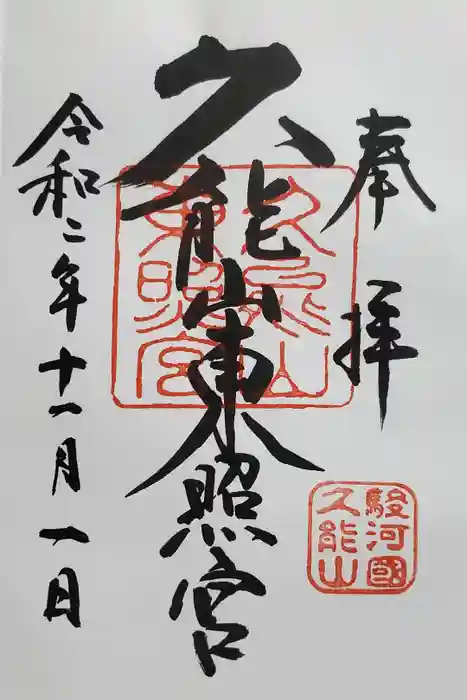 奉拝
久能山東照宮
久能山東照宮
駿河國
久能山
令和二年十一月一日